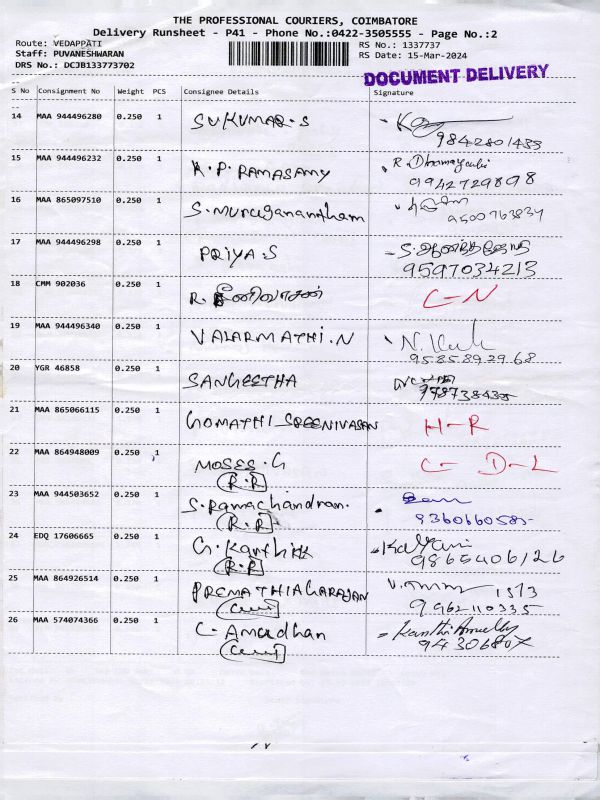 THE PROFESSIONAL COURIERS, COIMBATORE
Delivery Runsheet - P41 - Phone No.:0422-3505555 - Page No.:2
Route: VEDAPPATI RS No.: 1337737
Staff: PUVANESHWARAN RS Date: 15-Mar-2024
DRS No.: DCJB133773702
DOCUMENT DELIVERY
S No Consignment No Weight PCS Consignee Details Signature
14 MAA 944496280 0.250 1 SUKUMAR.S
9842801433
15 MAA 944496232 0.250 1 K.P. RAMASAMY R.
9942729898
16 MAA 865097510 0.250 1 S. Muruganandham
9500763834
17 MAA 944496298 0.250 1 PRIYA.S
9597034213
18 CMM 902036 0.250 1 R. C-N
19 MAA 944496340 0.250 1 VALARMATHI.N N.
9585892968
20 YGR 46858 0.250 1 SANGEETHA
21 MAA 865066115 0.250 1 GOMATHI SREENIVASAN H-R
22 MAA 864948009 0.250 1 MOSES.G C- D-L
(R.R)
23 MAA 944503652 0.250 1 S. Ramachandran.
(R.R)
24 EDQ 17606665 0.250 1 G. Karthik Kalyani
(R.R) 9865406126
25 MAA 864926514 0.250 1 PREMATHIAGARAJAN V. 15/3
9962110335
26 MAA 574074366 0.250 1 C- Amudhan